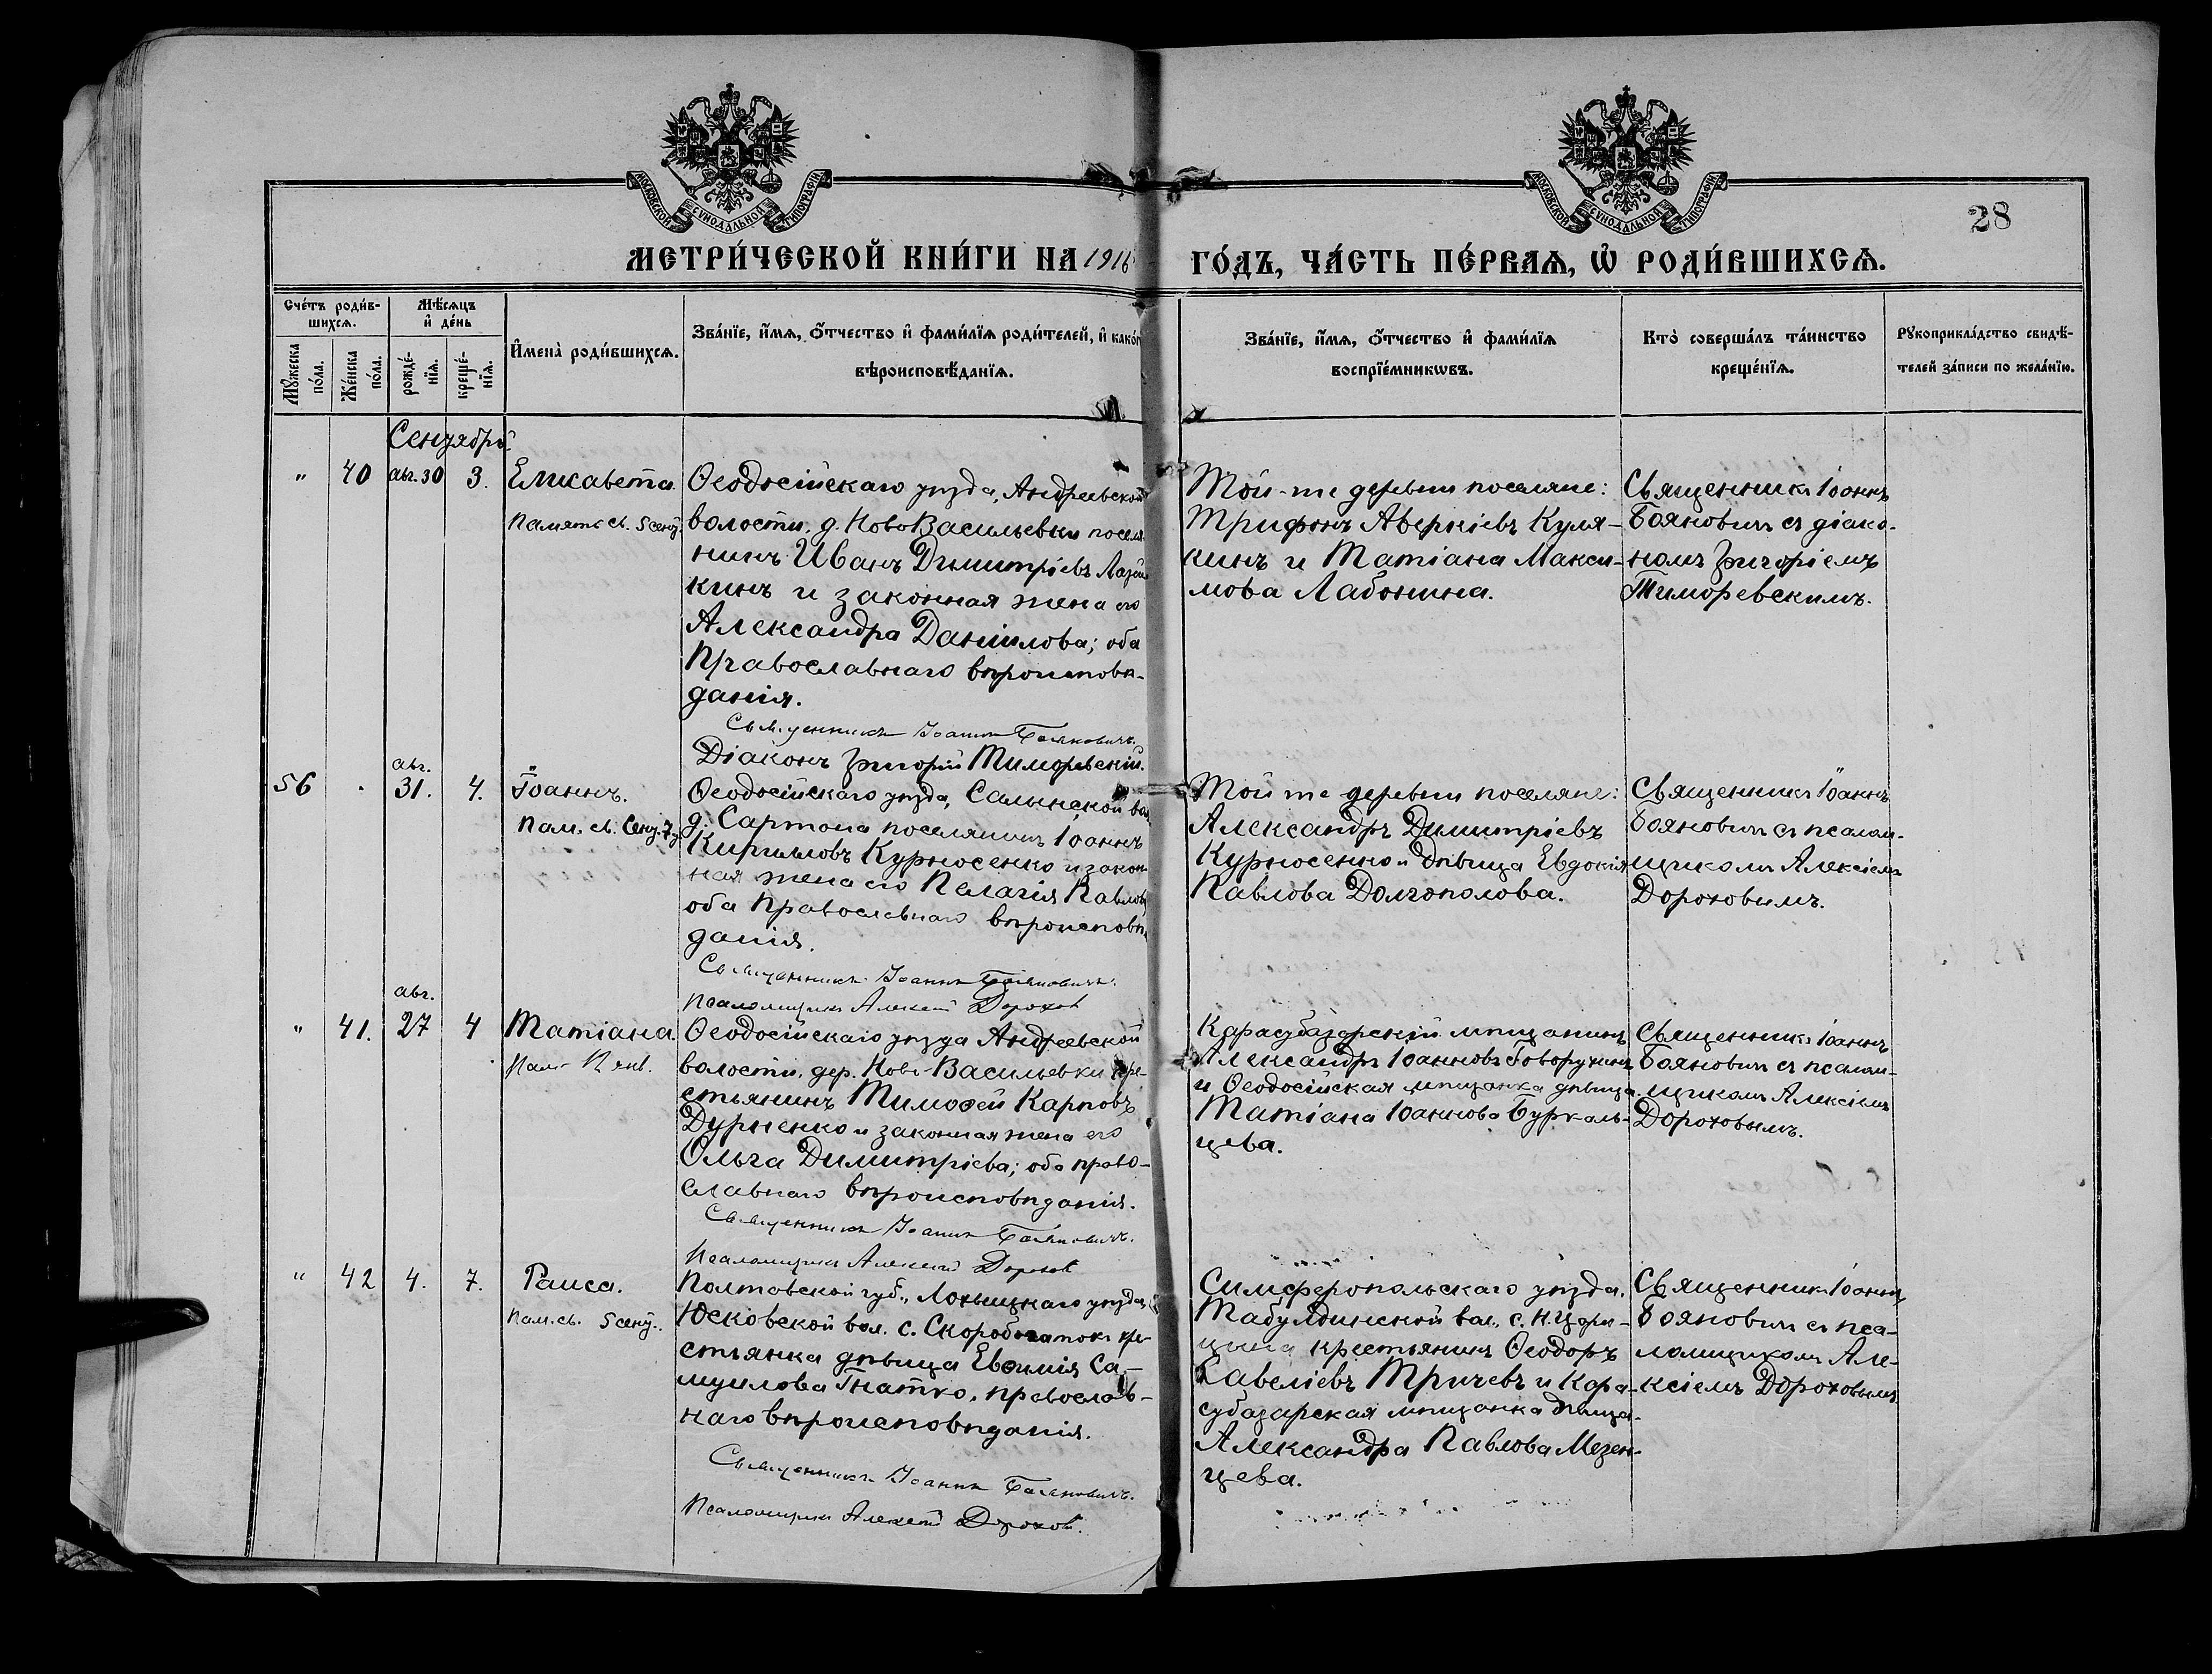 МОСКОВСКОЙ СѴНОДАЛЬНОЙ ТИПОГРАФІИ
МОСКОВСКОЙ СѴНОДАЛЬНОЙ ТИПОГРАФІИ
28
МЕТРИ́ЧЕСКОЙ КНИ́ГИ НА 1916 ГО́ДЪ, ЧА́СТЬ ПЕ́РВАЯ, Ѡ РОДИ́ВШИХСЯ.
Сче́тъ роди́в-
шихся.
Мѣ́сяцъ
и҆ де́нь
Мꙋ́жеска
по́ла.
Же́нска
по́ла.
рожде́-
нїя.
креще́-
нїя.
И҆мена̀ роди́вшихся.
Зва́нїе, и҆́мя, ѻ҆́тчество и҆ фами́лїя роди́телей, и҆ како́г
вѣроисповѣ́данїя.
Зва́нїе, и҆́мя, ѻ҆́тчество и҆ фами́лїя
воспрїе́мникѡвъ.
Кто̀ соверша́лъ та́инство
креще́нїя.
Рꙋкоприкла́дство свидѣ́-
телей за́писи по жела́нїю.
Сентябрь
" 40 авг. 30 3. Елисавета.
Память св. 5 сент.
Ѳеодосійскаго уѣзда, Андреевской
волости, д. Ново Васильевки поселя-
нинъ Иванъ Димитріевъ
кинъ и законная жена его
Александра Даніилова; оба
Православнаго вѣроисповѣ-
данія.
Священникъ Іоаннъ Бояновичъ.
Діаконъ Григорій Тиморевскій.
Той-же деревни поселяне:
Трифонъ Аверкіевъ Куля-
кинъ и Татіана Макси-
мова Лабонина.
Священникъ Іоаннъ
Бояновичъ съ діако-
номъ Григоріемъ
Тиморевскимъ.
56 . авг. 31. 4. Іоаннъ.
Пам. св. Сент. 7 д
Ѳеодосійскаго уѣзда, Салынской вол
д. Сартона поселянинъ Іоаннъ
Кирилловъ Курносенко и закон-
ная жена его Пелагія Павлов
оба Православнаго вѣроисповѣ
данія.
Священникъ Іоаннъ Бояновичъ.
Псаломщикъ Алексѣй Дороховъ
Той же деревни поселяне:
Александръ Димитріевъ
Курносенко и дѣвица Евдокія
Павлова Долгополова.
Священникъ Іоаннъ
Бояновичъ съ псалом-
щикомъ Алексіемъ
Дороховымъ.
" 41. авг. 27 4 Татіана.
Пам. 12 янв.
Ѳеодосійскаго уѣзда Андреевской
волости, дер. Ново-Васильевки кре-
стьянинъ Тимоѳей Карповъ
Дурненко и законная жена его
Ольга Димитріева; оба право-
славнаго вѣроисповѣданія.
Священникъ Іоаннъ Бояновичъ.
Псаломщикъ Алексѣй Дороховъ
Карасубазарскій мѣщанинъ
Александръ Іоанновъ Говорухинъ
и Ѳеодосійская мѣщанка дѣвица
Татіана Іоаннова Буркаль-
цева.
Священникъ Іоаннъ
Бояновичъ съ псалом-
щикомъ Алексіемъ
Дороховымъ.
" 42 4. 7. Раиса.
Пам. св. 5 сент.
Полтавской губ., Лохвицкаго уѣзда,
Юсковской вол. с. Скоробогатокъ кре-
стьянка дѣвица Евѳимія Са-
муилова Гнатко, православ-
наго вѣроисповѣданія.
Священникъ Іоаннъ Бояновичъ.
Псаломщикъ Алексѣй Дороховъ.
Симферопольскаго уѣзда,
Табулдинской вол., с. Н. Цари-
цына крестьянинъ Ѳеодоръ
Савеліевъ Тричевъ и Кара-
субазарская мѣщанка дѣвица
Александра Павлова Мезен-
цева.
Священникъ Іоаннъ
Бояновичъ съ пса-
ломщикомъ Але-
ксіемъ Дороховымъ